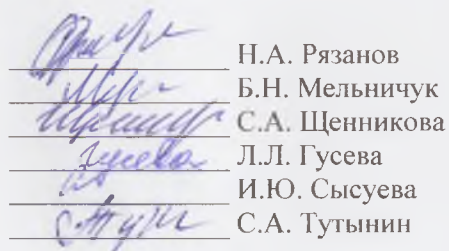 Н.А. Рязанов
Б.Н. Мельничук
С.А. Щенникова
Гусева Л.Л. Гусева
И.Ю. Сысуева
С.А. Тутынин